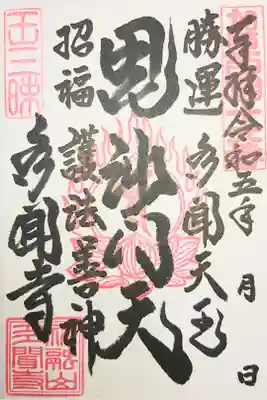 奉拝 令和五年 月 日
勝運 多聞天王
毘沙門天
招福 護法善神
多聞寺